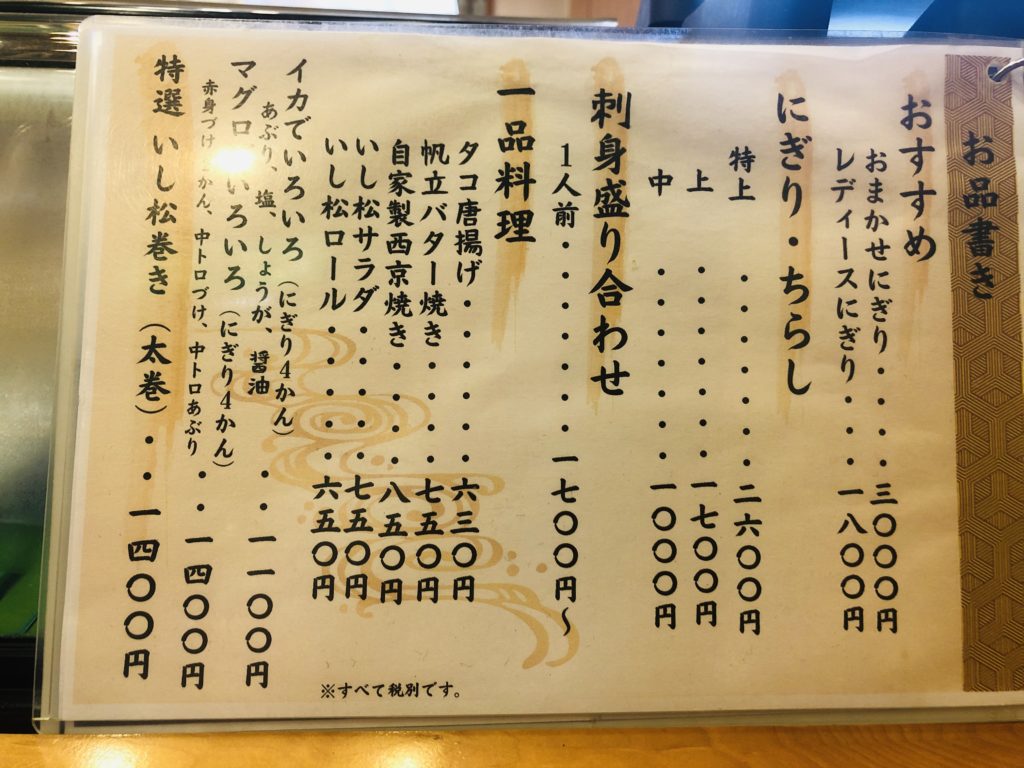 お品書き
おすすめ
おまかせにぎり・・・・三〇〇〇円
レディースにぎり・・・一八〇〇円
にぎり・ちらし
特上・・・・・・・二六〇〇円
上・・・・・・・一七〇〇円
中・・・・・・・一〇〇〇円
刺身盛り合わせ
1人前・・・・・・・一七〇〇円〜
一品料理
タコ唐揚げ・・・・・・六三〇円
帆立バター焼き・・・・七五〇円
自家製西京焼き・・・・八五〇円
いし松サラダ・・・・・七五〇円
いし松ロール・・・・・六五〇円
イカでいろいろ（にぎり4かん）
あぶり、塩、しょうが、醤油・・一一〇〇円
マグロ いろいろ（にぎり4かん）
赤身づけ かん、中トロづけ、中トロあぶり・・一四〇〇円
特選 いし松巻き（太巻）・・一四〇〇円
※すべて税別です。